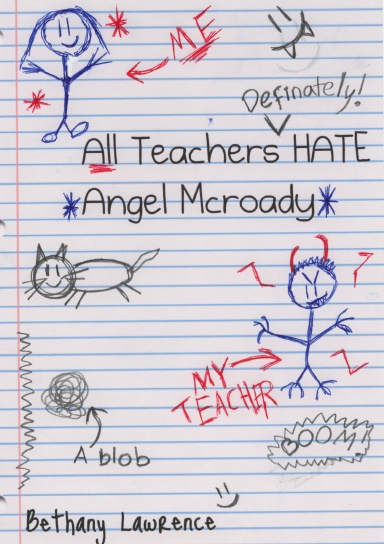 ME
Definately!
All Teachers HATE
*Angel Mcroady*
MY
TEACHER
BOOM!
A blob
Bethany Lawrence